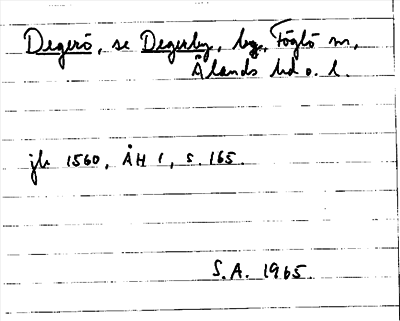 Degerö, se Degerby, by, Föglö sn,
Ålands hd o. l.
jb 1560, ÅH 1, s. 165.
S.A. 1965.